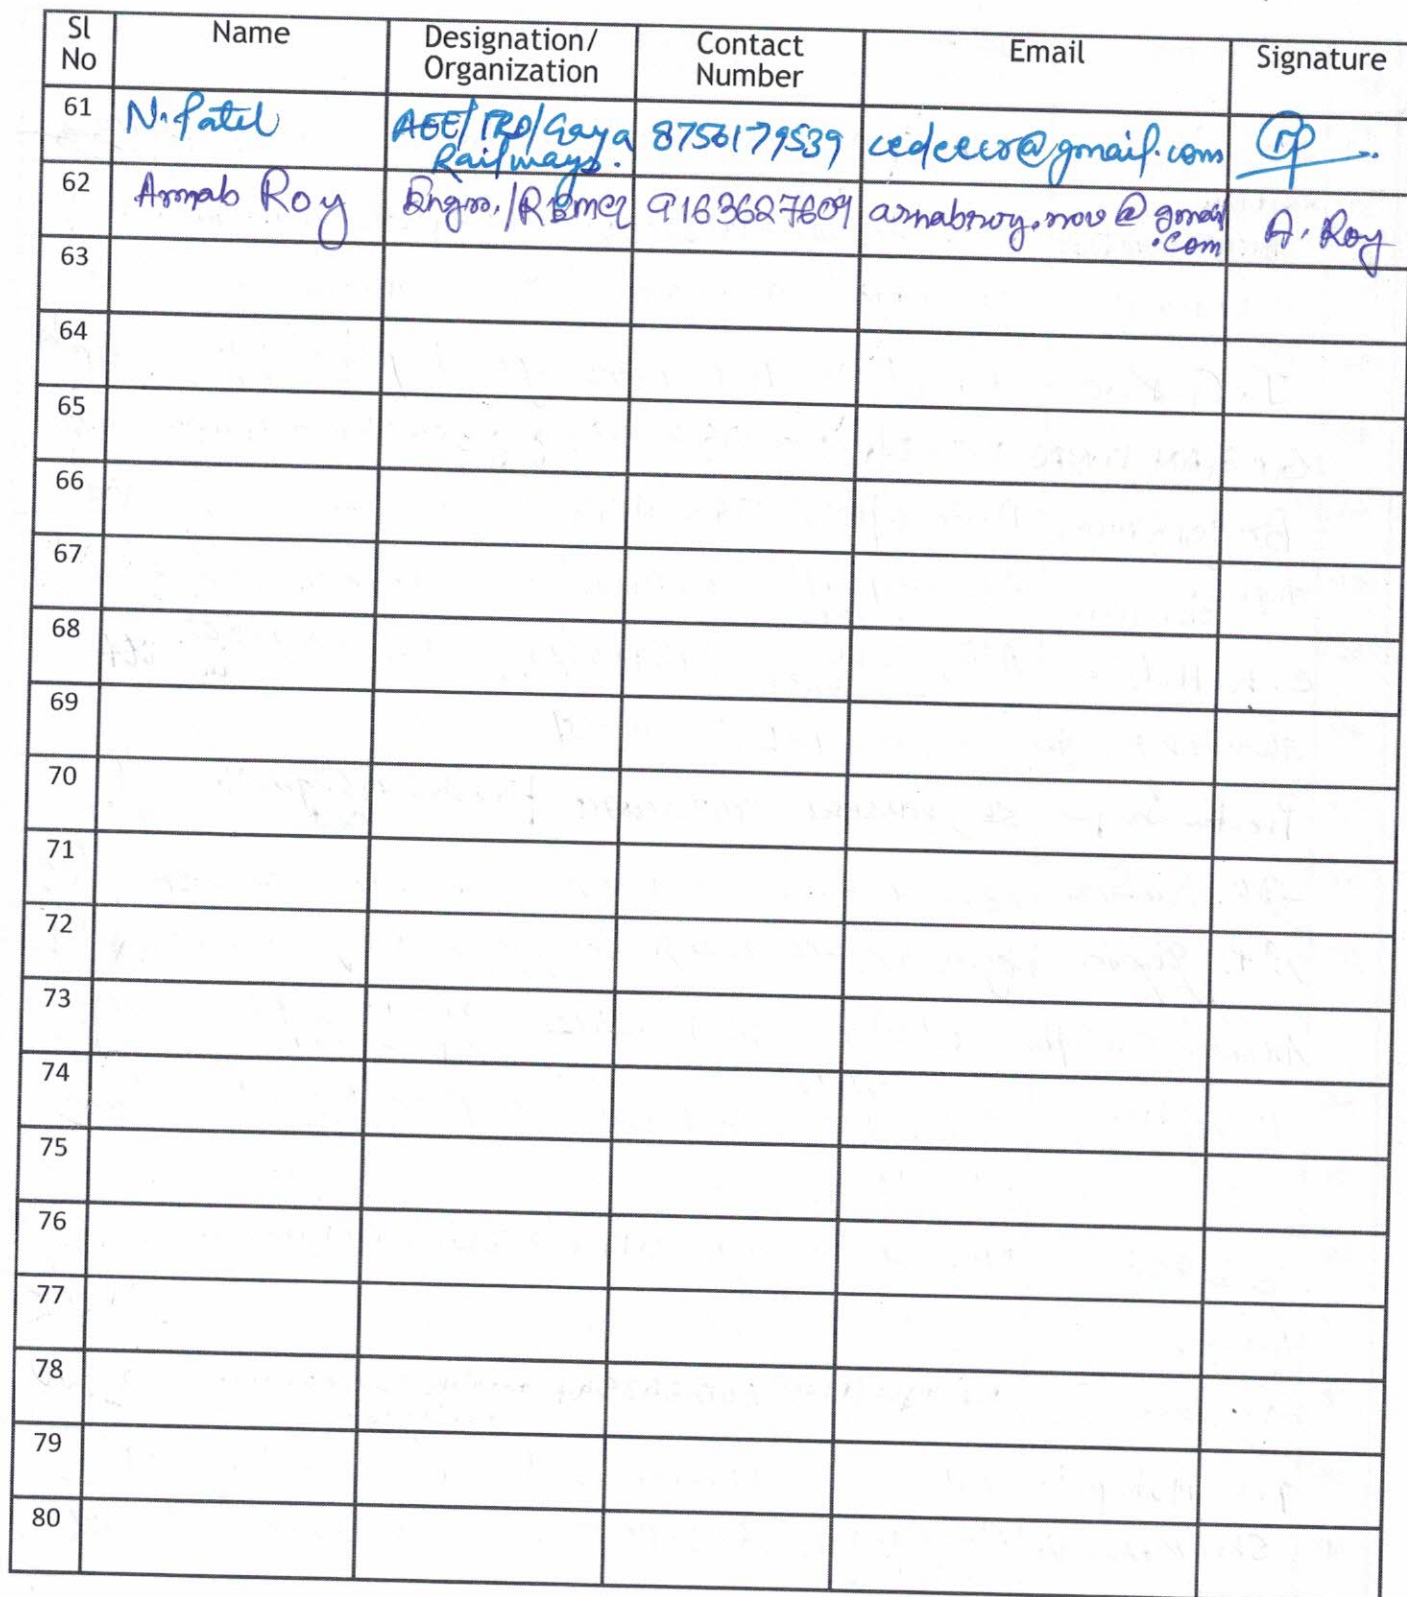 Sl No Name Designation/ Organization Contact Number Email Signature
61 N. Patel AEE/TRD/Gaya Railways. 8756179539 cedeecr@gmail.com
62 Arnab Roy Engr./RBMCI 9163627609 arnabroy.nov@gmail.com A. Roy
63
64
65
66
67
68
69
70
71
72
73
74
75
76
77
78
79
80